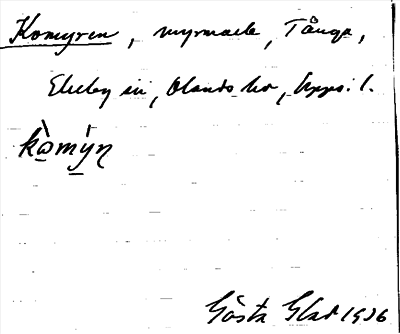 Komyren, myrmark, Tånga,
Ekeby sn, Olands hd, Upps. l.
kòmýn
Gösta Glad 1936